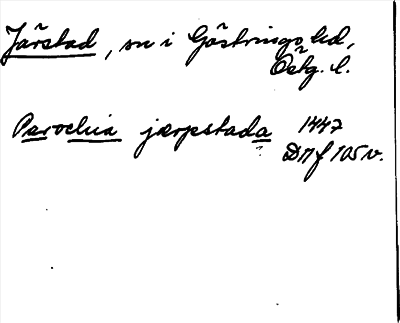 Järstad, sn i Göstrings hd,
Östg. l.
Parochia jærpstada 1447
DMf 105 v.